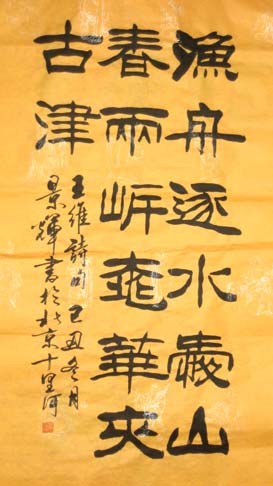 漁舟逐水愛山
春兩岸桃華夾
古津
王維詩句 己丑冬月
景輝書於北京十里河